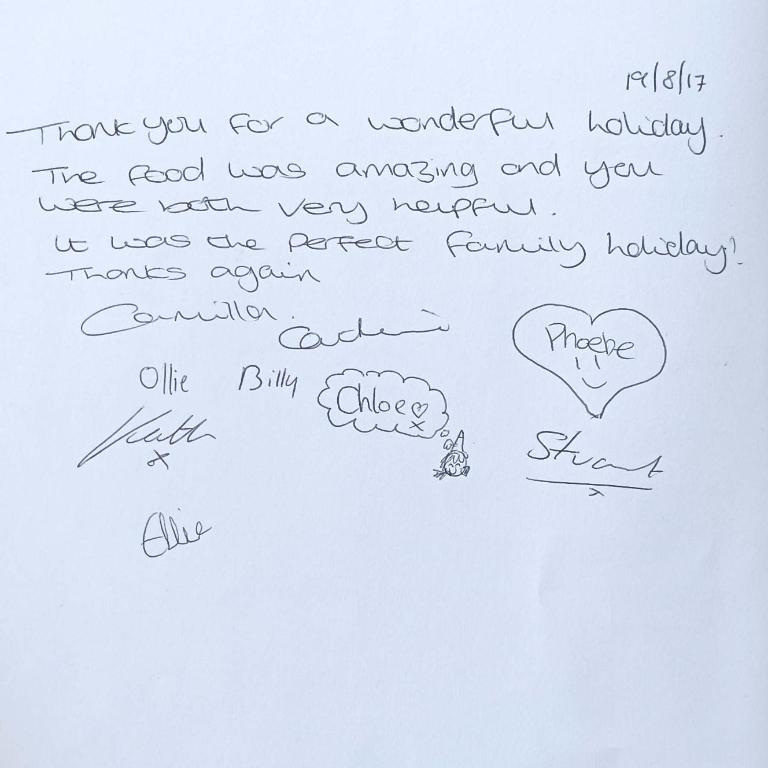 19/8/17
Thank you for a wonderful holiday.
The food was amazing and you
were both very helpful.
It was the perfect family holiday!
Thanks again
Camilla.
Phoebe
Ollie Billy Chloe
x
Stuart
x
x
Ellie